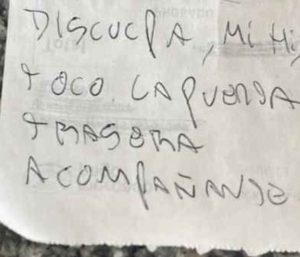 DISCUCPA, Mi Hi
TOCO. LA PUERTA
TRASERA
ACOMPAÑANDE